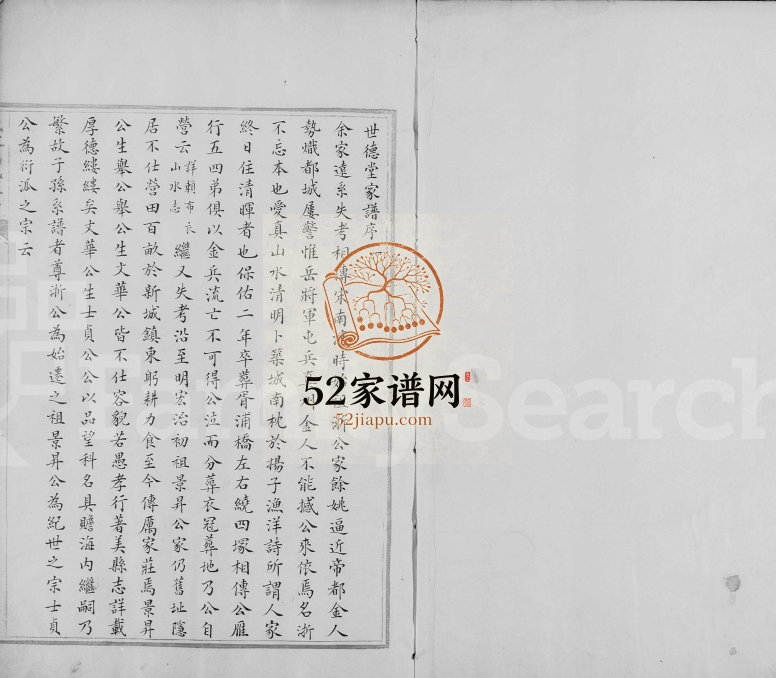 世德堂家譜序
余家遠系失考相傳宋南渡時 浙公家餘姚逼近帝都金人
勢熾都城屢警惟岳將軍屯兵 金人不能撼公來依焉名浙
不忘本也愛真山水清明卜築城南枕於揚子漁洋詩所謂人家
終日住清暉者也保佑二年卒葬胥浦橋左右繞四塚相傳公雁
行五四弟俱以金兵流亡不可得公泣而分葬衣冠葬地乃公自
營云詳賴布衣山水志繼又失考沿至明宏治初祖景昇公家仍舊址隱
居不仕營田百畝於新城鎮東躬耕力食至今傳厲家莊焉景昇
公生舉公舉公生文華公皆不仕容貌若愚孝行著美縣志詳載
厚德縷縷矣文華公生士貞公公以品望科名具贍海内繼嗣乃
繁故子孫系譜者尊浙公為始遷之祖景昇公為紀世之宗士貞
公為衍派之宗云
52家谱网
52jiapu.com
FamilySearch